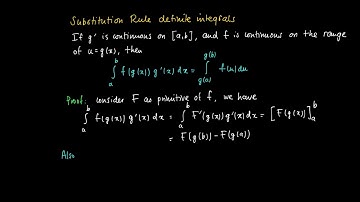 Substitution Rule definite integrals
If g' is continuous on [a,b], and f is continuous on the range
of u=g(x), then
∫_a^b f(g(x)) g'(x) dx = ∫_{g(a)}^{g(b)} f(u) du
Proof: consider F as primitive of f, we have
∫_a^b f(g(x)) g'(x) dx = ∫_a^b F'(g(x)) g'(x) dx = [F(g(x))]_a^b
= F(g(b)) - F(g(a))
Also